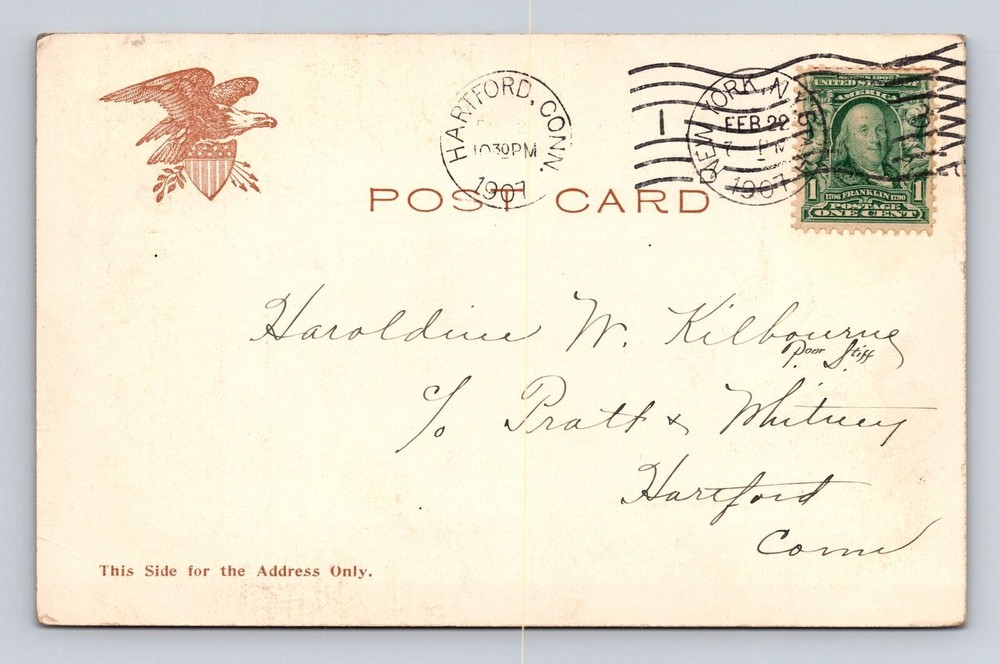 HARTFORD, CONN.
10 30 PM
1907
NEW YORK, N.Y.
FEB 22
7 PM
1907
1
SERIES 1902
UNITED STATES OF
AMERICA
1 1
1706 FRANKLIN 1790
POSTAGE
ONE CENT
POST CARD
Haroldine W. Kilbourne
Poor Stiff
c/o Pratt & Whitney
Hartford
Conn
This Side for the Address Only.